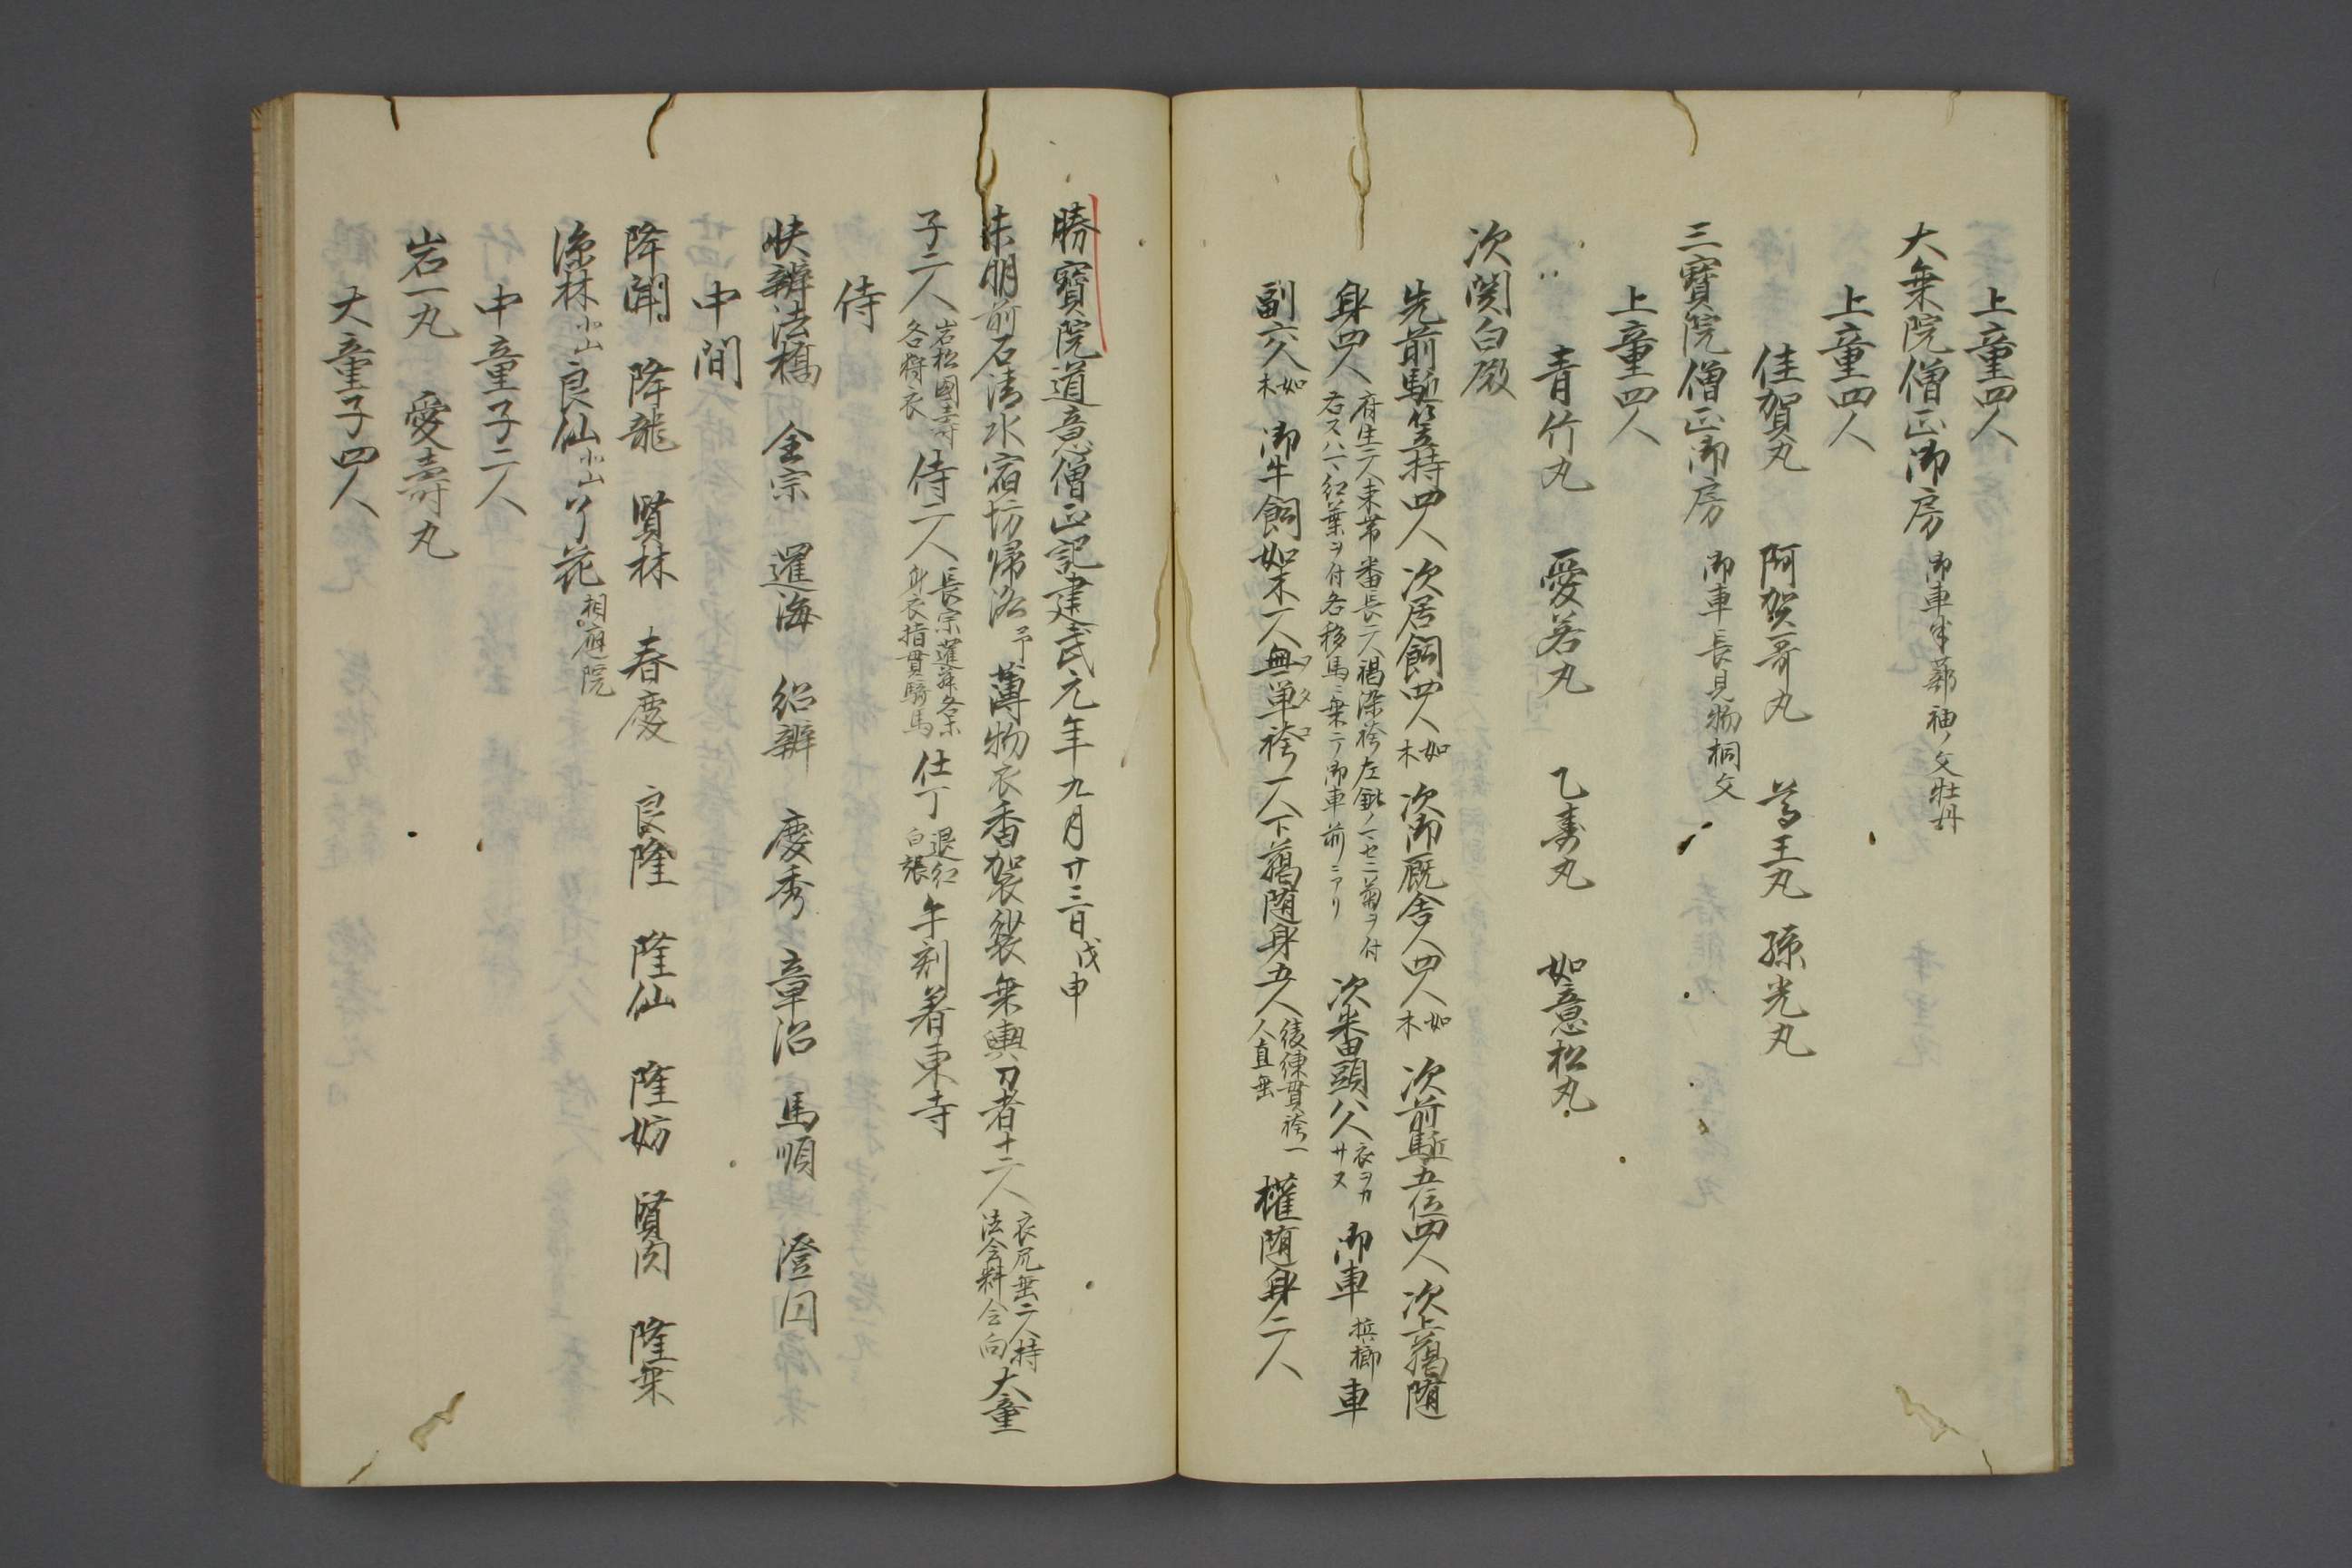 上童四人
大乗院僧正御房 御車半蔀袖ノ文牡丹
上童四人
佳賀丸 阿賀哥丸 王丸 孫光丸
三寶院僧正御房 御車長見物桐文
上童四人
青竹丸 愛若丸 乙寿丸 如意松丸
次関白殿
先前駈笠持四人 次居飼四人 如木 次御厩舎人四人 如木 次前駈五位四人 次上﨟随
身四人 府生二人束帯番長二人褐染袴左 ノ菊ヲ付
右スハヘ紅葉ヲ付各移馬ニ乗テ御車前ニアリ
次番頭八人 衣ヲカサヌ 御車 檳榔 車
副六人 如木 御牛飼如木一人無単袴一人下﨟随身五人 後練貫袴一人直垂 権随身二人
勝寶院道意僧正記建武元年九月廿三日戊申
未明前石清水宿坊帰洛 予 薄物衣香袈裟乗輿力者十二人 衣尻垂二人持 法会料 向 大童
子二人 岩松國寿各狩衣 侍二人 長宗暹 各 衣指貫騎馬 仕丁 退紅白張 午刻着東寺
侍
快辨法橋 全宗 暹海 紹辨 慶秀 章治 馬順 澄囙
中間
降聞 降龍 賢林 春慶 良隆 隆仙 隆妨 賢 隆乗
涼林 小山 良仙 小山 了花 相應院
中童子二人
岩一丸 愛壽丸
大童子四人